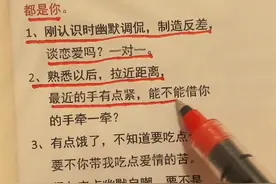 都是你。
1、刚认识时幽默调侃，制造反差，
谈恋爱吗？一对一。
2、熟悉以后，拉近距离，
最近的手有点紧，能不能借你
的手牵一牵？
3、有点饿了，不知道要吃点
要不你带我吃点爱情的苦。